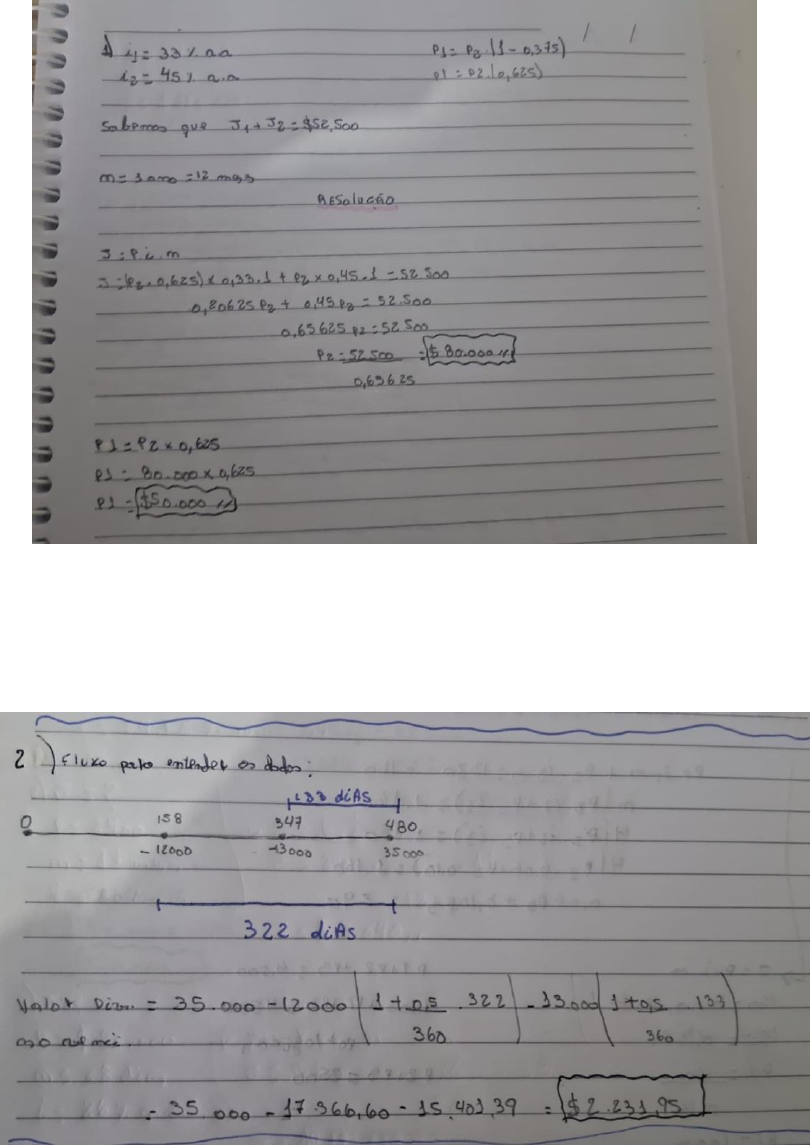 1) i1 = 33% a.a
P1 = P2.(1 - 0,375)
i2 = 45% a.a
P1 = P2.(0,625)
Sabemos que J1 + J2 = $52,500
n = 1 ano = 12 meses
RESoluçÃo
J = P.i.n
J = (P2.0,625) x 0,33.1 + P2 x 0,45.1 = 52 500
0,20625 P2 + 0,45 P2 = 52.500
0,65625 P2 = 52 500
P2 = 52 500 = $ 80.000
0,65625
P1 = P2 x 0,625
P1 = 80.000 x 0,625
P1 = $50.000
2) Fluxo para entender os dados:
133 diAS
0 158 347 480
- 12000 -13000 35000
322 diAS
Valor = 35.000 - 12000 (1 + 0,5 . 322) - 13.000 (1 + 0,5 . 133)
360 360
= 35 000 - 17 366,60 - 15.401,39 = $ 2.231,95